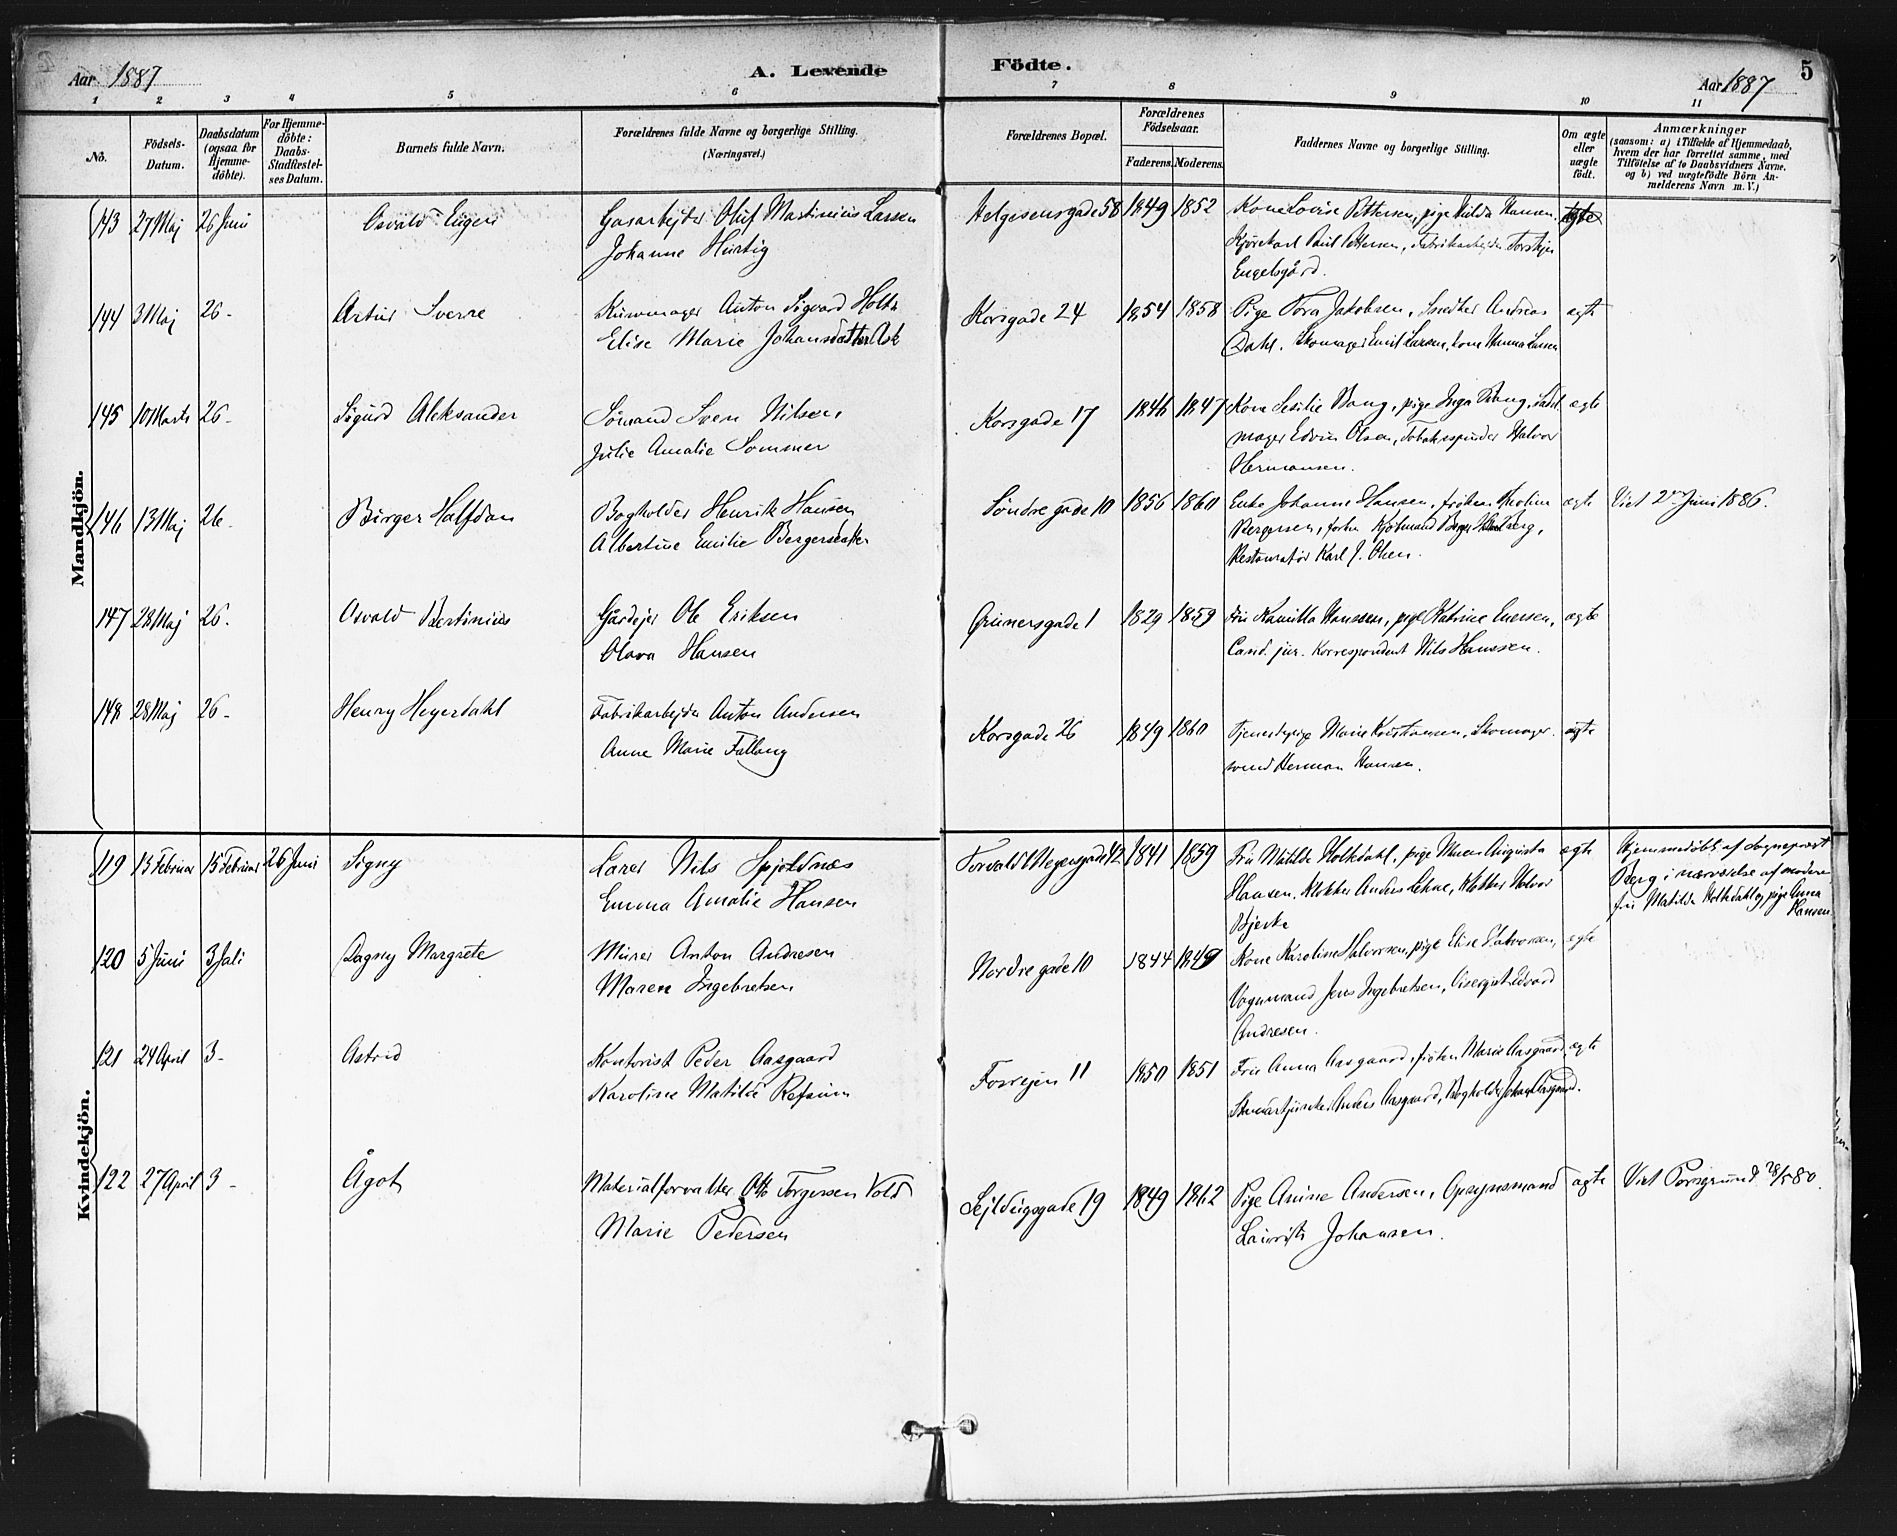 Aar 1887
A. Levende
Födte.
Aar 1887
5
1 2 3 4 5 6 7 8 9 10 11
No.
Födsels-Datum.
Daabsdatum (ogsaa for Hjemme-döbte).
For Hjemme-döbte: Daabs-Stadfæstel-ses Datum.
Barnets fulde Navn.
Forældrenes fulde Navne og borgerlige Stilling.
(Næringsvei.)
Forældrenes Bopæl.
Forældrenes Födselsaar.
Faderens. Moderens.
Faddernes Navne og borgerlige Stilling.
Om ægte eller uægte født.
Anmærkninger
(saasom: a) i Tilfælde af Hjemmedaab,
hvem der har forrettet samme, med
Tilföielse af to Daabsvidners Navne,
og b) ved uægtefödte Börn An-
melderens Navn m. V.)
Mandkjön.
143 27 Maj 26 Juni Osvald Eugen Gasarbejder Oluf Martinius Larsen Helgesensgade 58 1849 1852 Kone Lovise Pettersen, pige Hilda Hansen, ægte
Johanne Hurtig Kjørekarl Paul Pettersen, Fabrikarbejder Torstejn
Engelsgård.
144 3 Maj 26 - Artur Sverre Anton Sigvard Holth Korsgade 24 1854 1858 Pige Tora Jakobsen, Snedker Andreas ægte
Elise Marie Johansdatter Ask Dahl. Skomager Emil Larsen, kone Larsen
145 10 Marts 26 - Sigurd Aleksander Sömand Sven Nilsen Korsgade 17 1846 1847 Kone Sesilie Bang, pige Inga Bang, Sadel ægte
Julie Amalie Sommer mager Edvin Olsen, Tobakspinder Halvor
Hermansen.
146 13 Maj 26 - Birger Halfdan Bogholder Henrik Hansen Söndre gade 10 1856 1860 Enke Johanne Hansen, frøken ægte Viet 2 Juni 1886.
Albertine Emilie Bergersen Bergersen, Kjøbmand
Restauratör Karl J. Olsen.
147 28 Maj 26. Osvald Bertinius Gårdejer Ole Eriksen Grünersgade 1 1829 1859 Fru Kamilla Hanssen, pige Katrine Evensen, ægte
Olava Hansen Cand. jur. Korrespondent Nils Hanssen.
148 28 Maj 26 - Henry Heyerdahl Fabrikarbejder Anton Andersen Korsgade 26 1849 1860 Tjenestepige Marie, Skomager- ægte
Anne Marie Fallang svend Herman Hansen.
Kvindekjön.
119 15 Februar 15 Februar 26 Juni Signy Lærer Nils Spjeldnæs Torvald Meyersgade 42 1841 1859 Fru Matilde Holkdahl, pige Maren Augusta ægte Hjemmedöbt af Sogneprest
Emma Amalie Hansen Hansen. Klokker Anders Lehne, Klokker Halvor Berg i nærværelse af moderen
Bjerke fru Matilde Holkdahl og pige Anna
Hansen
120 5 Juni 3 Juli Dagny Margrete Murer Anton Andresen Nordre gade 10 1844 1849 Kone Karoline Halvorsen, pige Elise Halvorsen, ægte
Maren Ingebretsen Vognmand Jens Ingebretsen, Edvard
Andresen.
121 24 April 3 - Astrid Kontorist Peder Aasgaard Fossvejen 11 1850 1851 Fru Anna Aasgaard, fröken Marie Aasgaard, ægte
Karoline Matilde Refsum Anders Aasgaard, Bogholder Johan Aasgaard.
122 27 April 3 - Ågot Materialforvalter Otto Torgersen Vold Sejldugsgade 19 1849 1862 Pige Anine Andersen, Opsynsmand ægte Viet Porsgrund 28/5 80.
Marie Pedersen Lauritz Johansen.